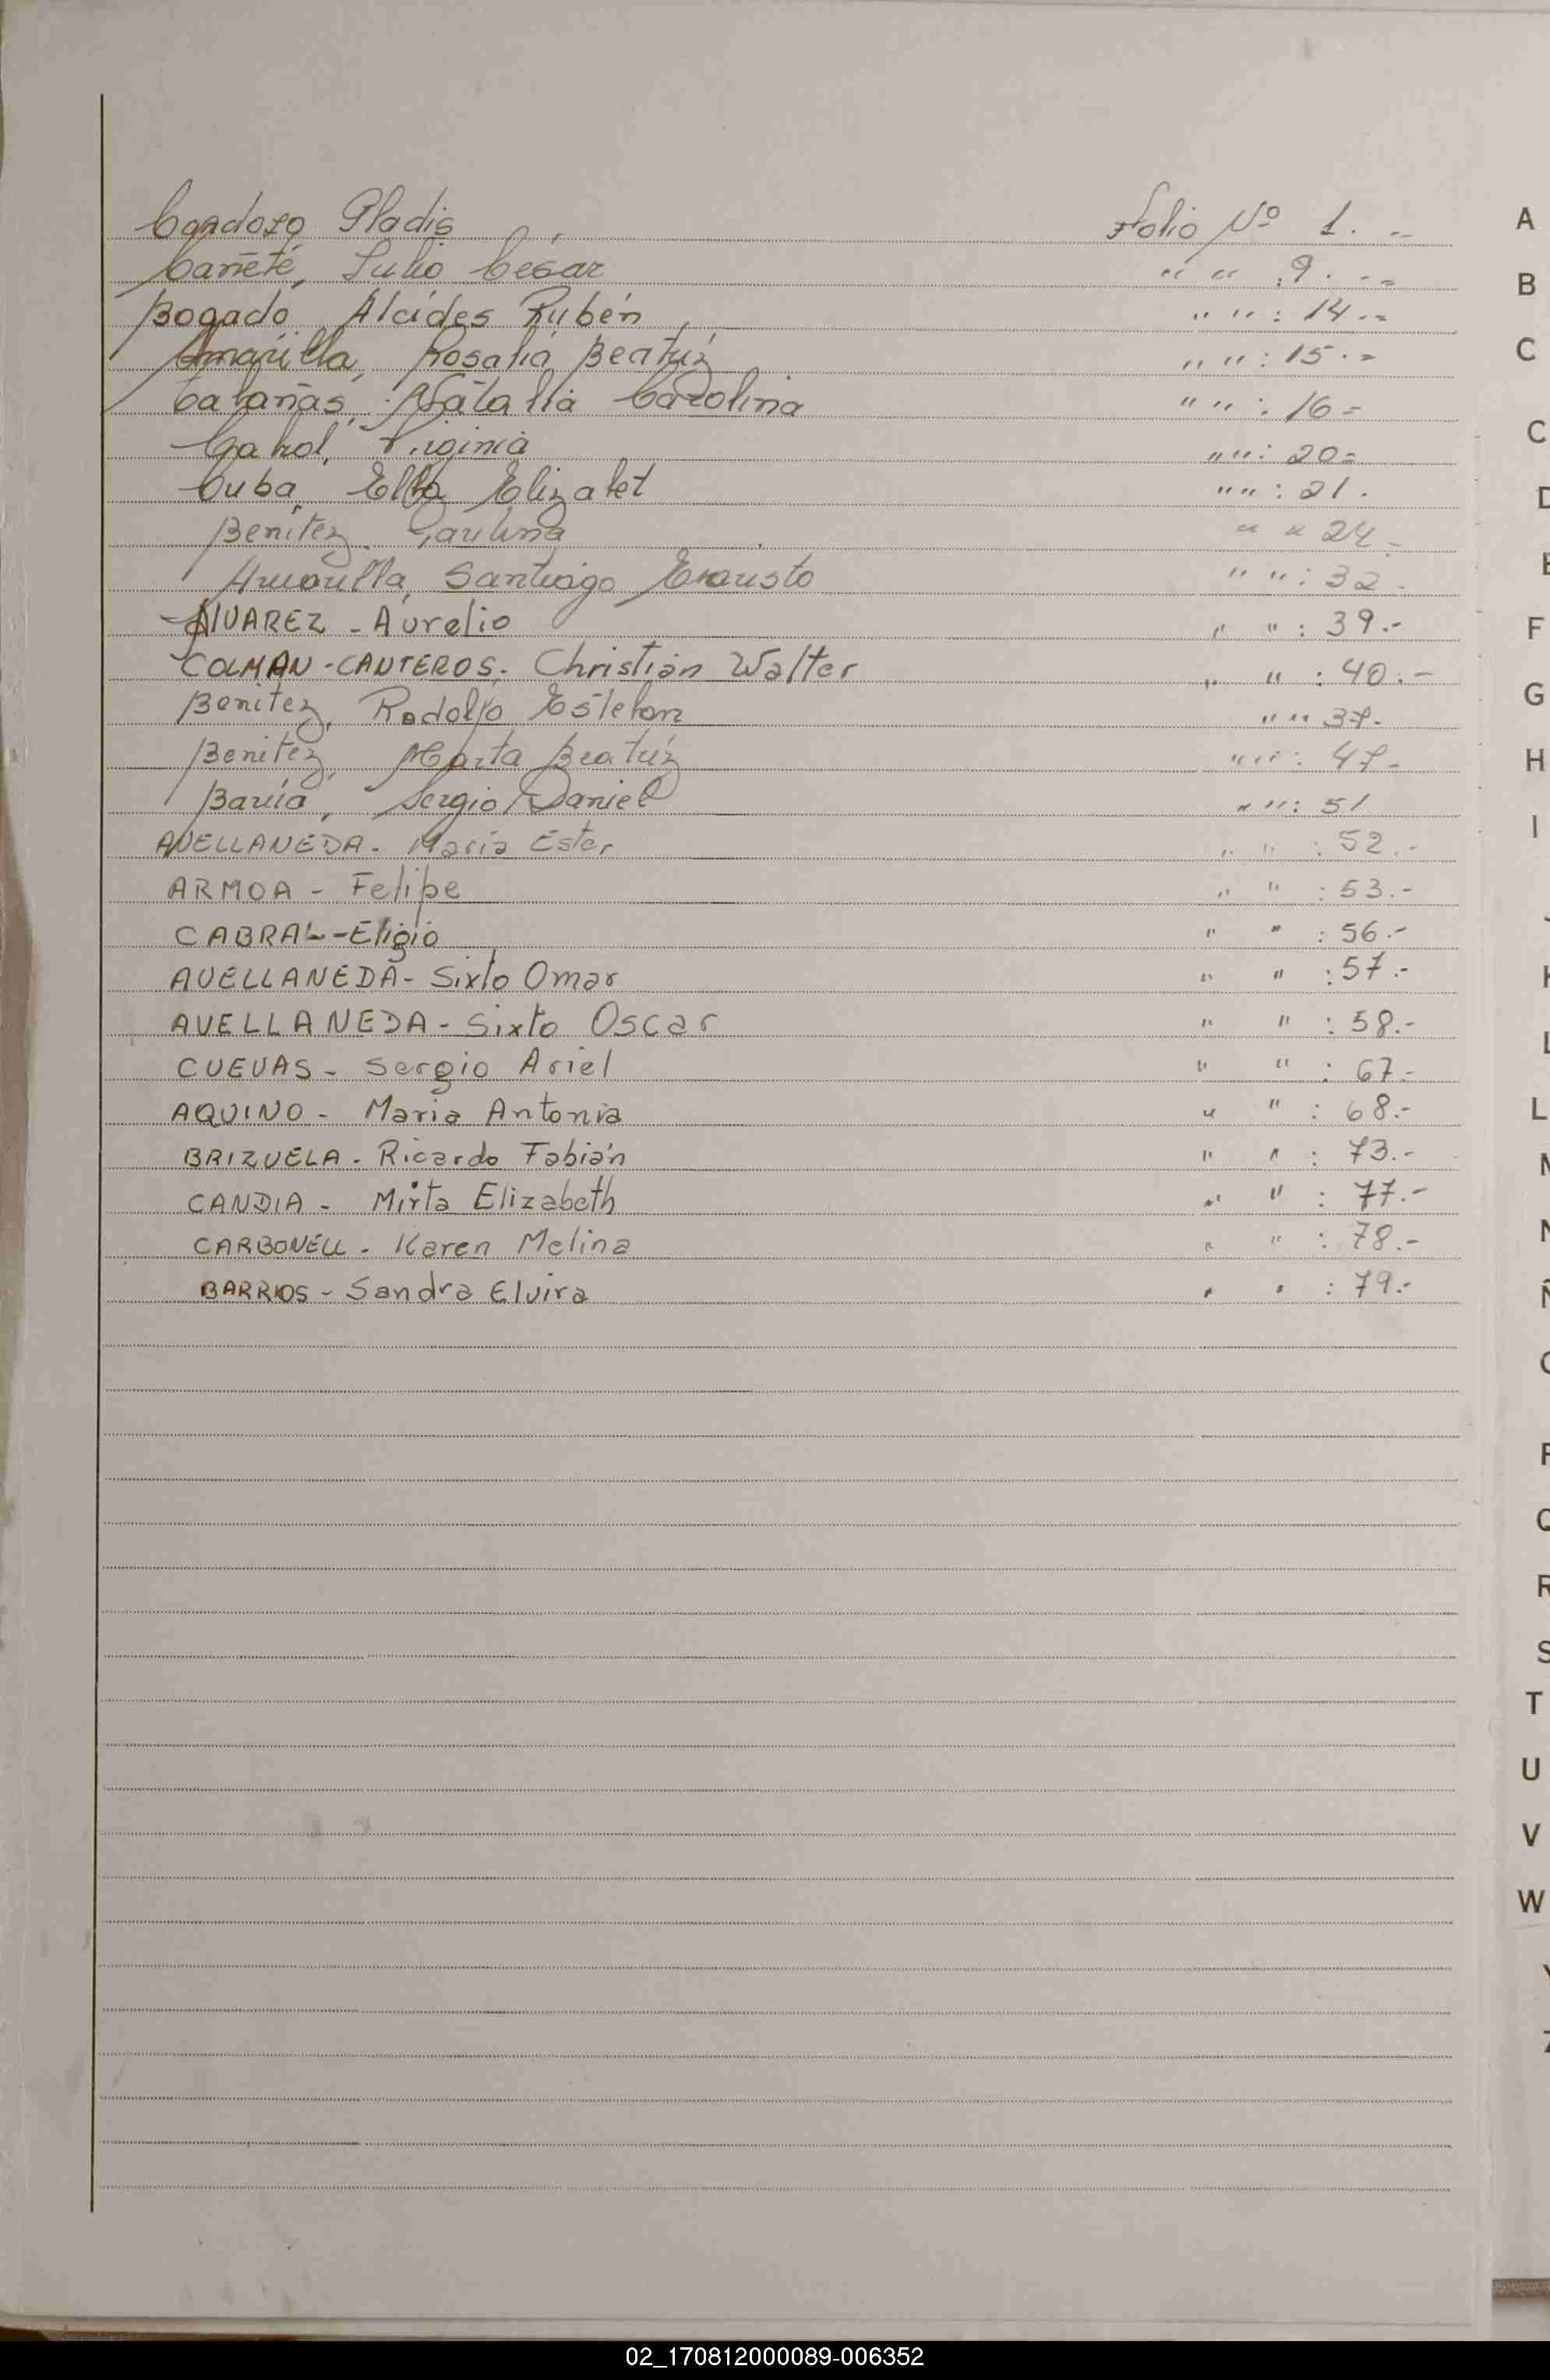 Cardozo Gladis, Folio Nº 1. --
Cañete, Julio César " " : 9. - =
Bogado, Alcídes Rubén, " " : 14.-=
Amarilla, Rosalia Beatríz " " : 15.-=
Cabañas, Natalia Carolina " " : 16 =
Cabrol, Virginia " " : 20=
Cuba, Elba Elizabet " " : 21.
Benítez. Paulina " " 24.-
Amarilla, Santiago Evaristo " " : 32.-
ALVAREZ - Aurelio " " : 39.-
COLMAN - CANTEROS. Christian Walter " " : 40.-
Benítez, Rodolfo Esteban " " 37.-
Benítez, Marta Beatríz " " : 47.-
Sergio Daniel " " : 51
AVELLANEDA - María Ester " " : 52.-
ARMOA - Felipe " " : 53.-
CABRAL - Eligio " " : 56.-
AVELLANEDA - Sixto Omar " " : 57.-
AVELLANEDA - Sixto Oscar " " : 58.-
CUEVAS - Sergio Ariel " " : 67.-
AQUINO - Maria Antonia " " : 68.-
BRIZUELA - Ricardo Fabián " " : 73.-
CANDIA - Mirta Elizabeth " " : 77.-
CARBONELL - Karen Melina " " : 78.-
BARRIOS - Sandra Elvira " " : 79.-
A
B
C
C
D
E
F
G
H
I
J
K
L
L
M
N
N
Ñ
O
P
Q
R
S
T
U
V
W
Y
Z
02_170812000089-006352